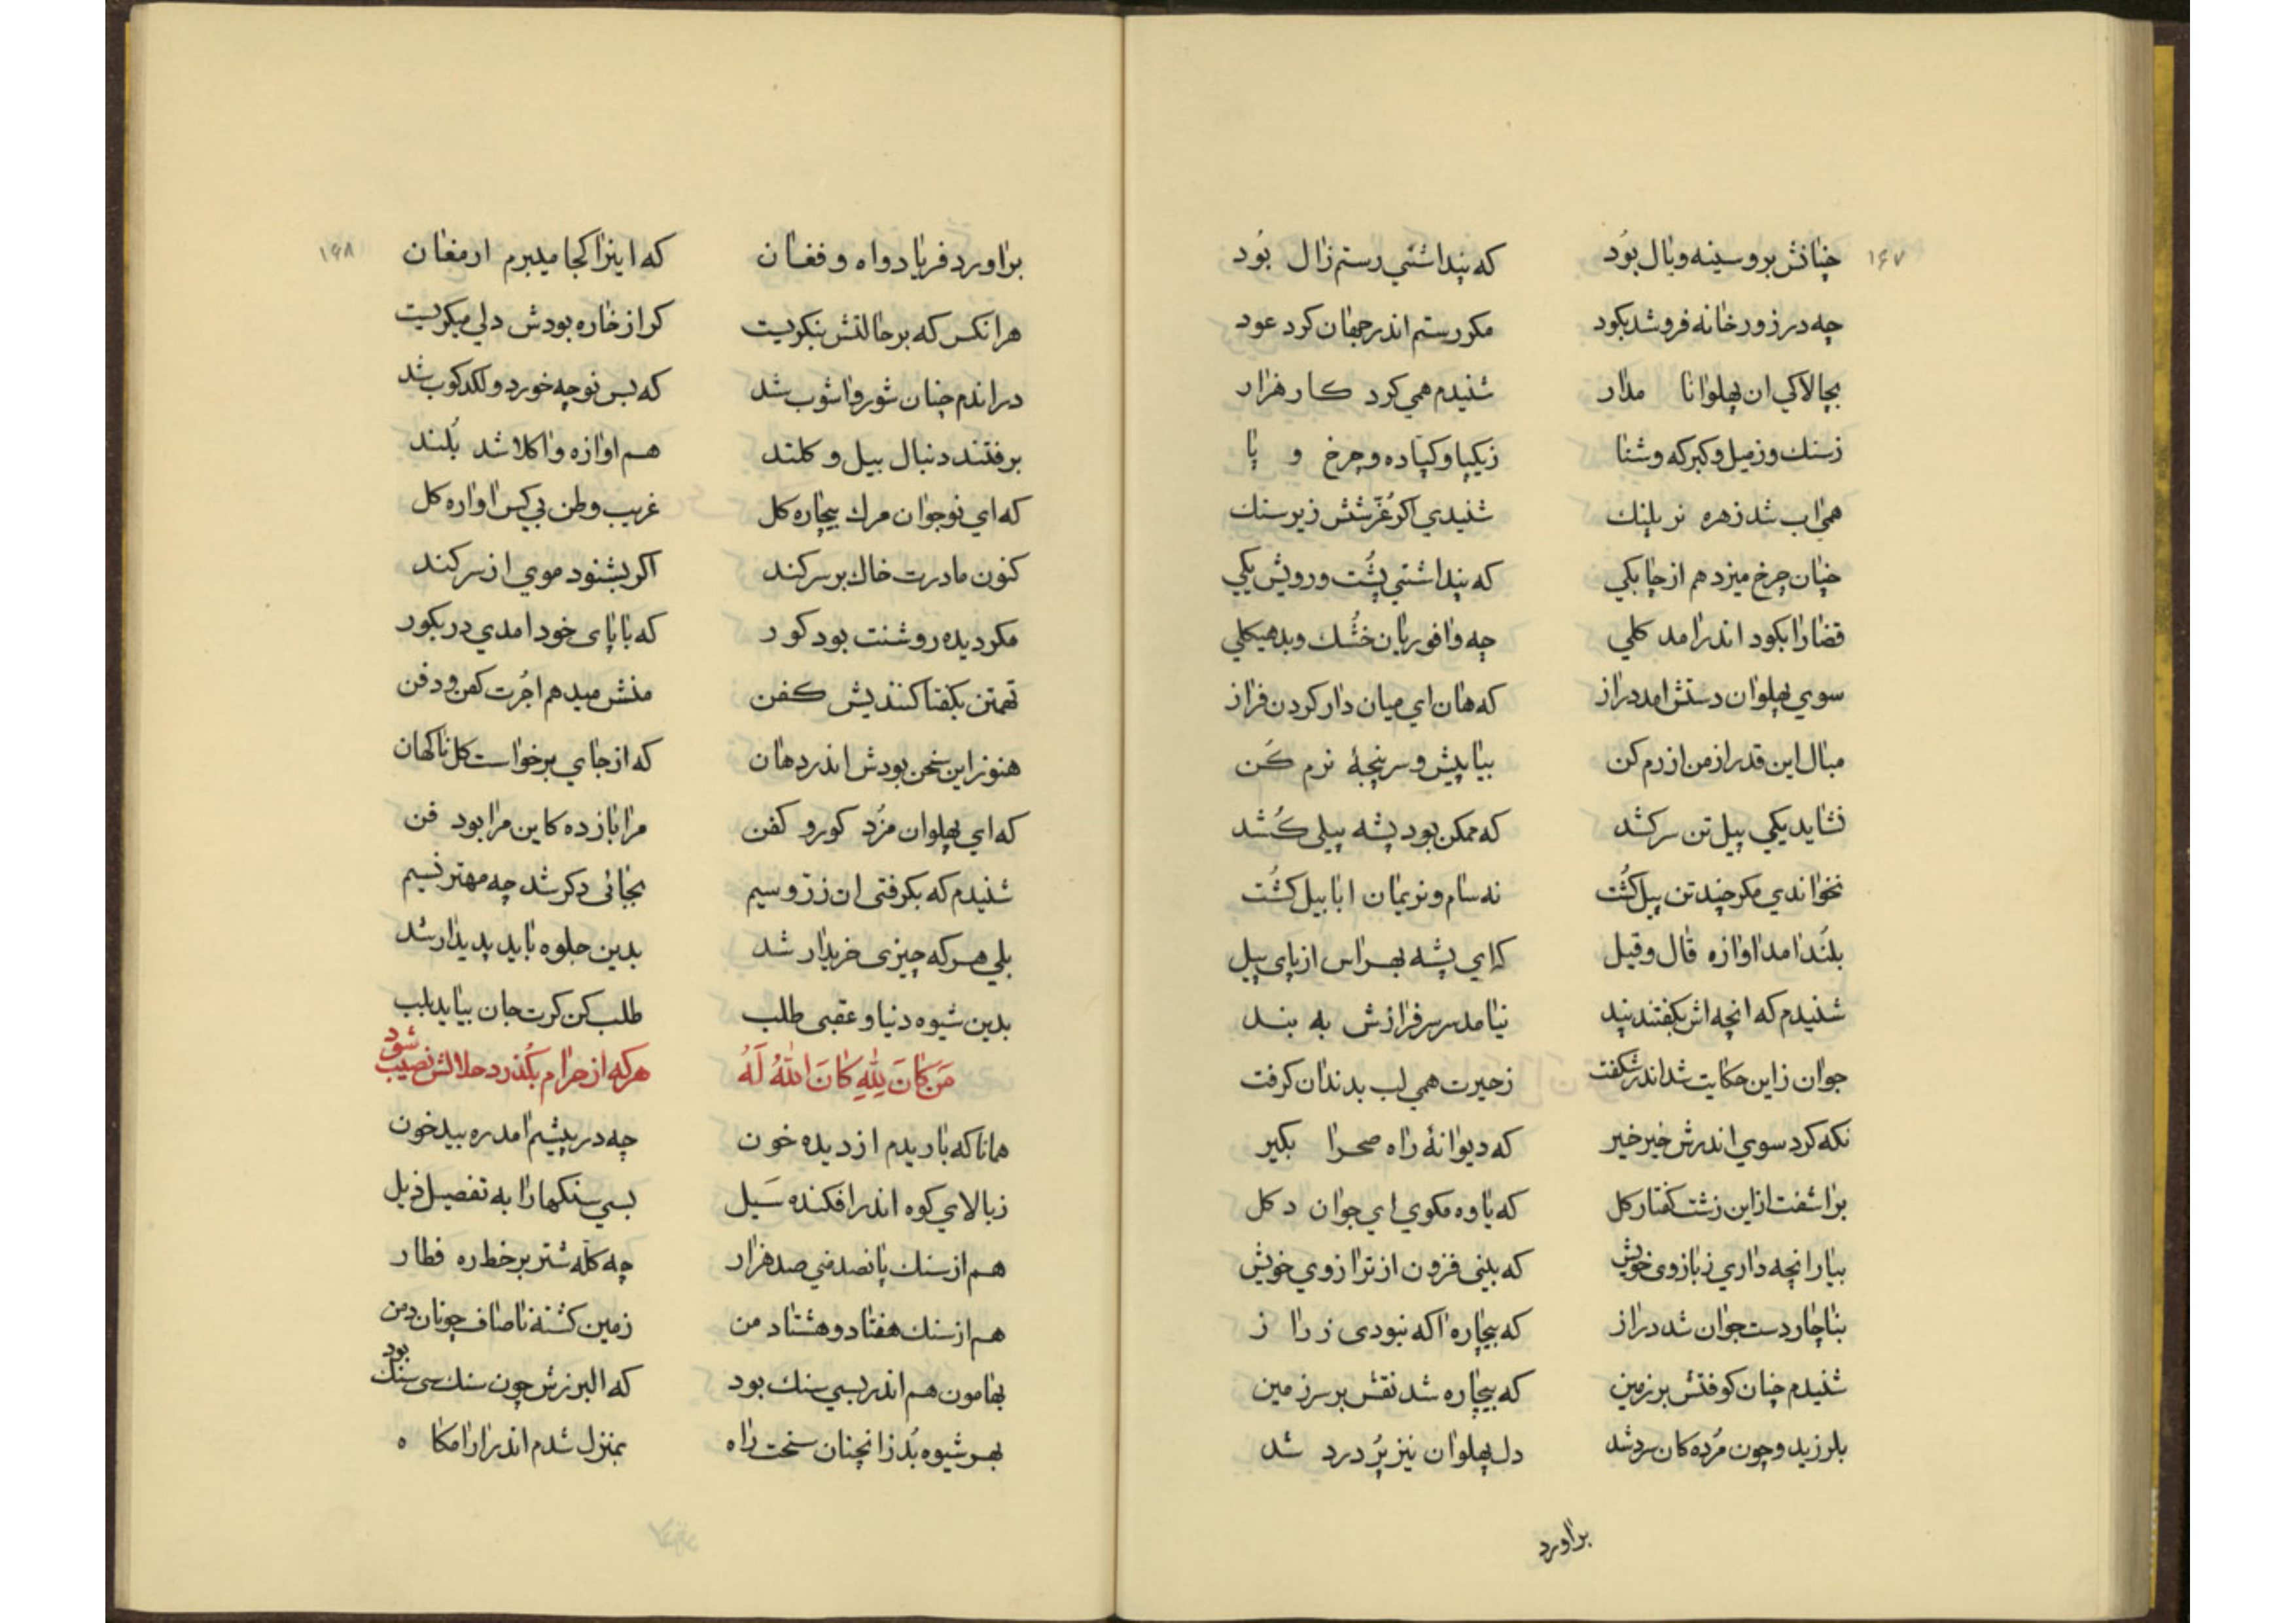 ۱۶۷
چنانش بر و سینه و یال بود که پنداشتی رستم زال بود
چه در زورخانه فرو شد بکود مکر رستم اندر جهان کرد عود
بچالاکی ان پهلوانا مدار شنیدم همی کرد کار هزار
ز سنک و ز میل و کبرکه و شنا ز یکپا و کپاده و چرخ و پا
همی اب شد زهره نر پلنک شنیدی اکر غرشش زیر سنک
چنان چرخ میزد هم از چابکی که پنداشتی پشت و رویش یکی
قضا را بکود اندر امد کلی چه وافوریان خشک و بد هیکلی
سوی پهلوان دستش امد دراز که هان ای میاندار کردن فراز
مبال این قدر از من ازرم کن بیا پیش و سر پنجۀ نرم کن
نشاید یکی پیل تن سرکشد که ممکن بود پشه پیلی کشد
نخواندی مکر چند تن پیل کشت نه سام و نریمان ابابیل کشت
بلند امد اوازه قال و قیل که ای پشه بهراس از پای پیل
شنیدم که انچه اش بکفتند پند نیامد سر سرفرازش به بند
جوان زاین حکایت شد اندر شکفت ز حیرت همی لب بدندان کرفت
نکه کرد سوی اندرش خیر خیر که دیوانۀ راه صحرا بکیر
براشفت از این زشت کفتار کل که یاوه مکوی ای جوان دکل
بیار انچه داری ز بازوی خویش که بینی فزون از ترازوی خویش
بناچار دست جوان شد دراز که بیچاره اکه نبودی ز راز
شنیدم چنان کوفتش بر زمین که بیچاره شد نقش بر سر زمین
بلرزید و چون مرده کان سرد شد دل پهلوان نیز پر درد شد
براورد
۱۶۸
براورد فریاد و اه و فغان که اینرا کجا میبرم ارمغان
هرانکس که بر حالتش بنکریست کر از خاره بودش دلی میکریست
در اندم چنان شور و اشوب شد که بس نوچه خورد و لکدکوب شد
برفتند دنبال بیل و کلند هم اوازه واکلا شد بلند
که ای نوجوان مرک بیچاره کل غریب وطن بی کس اواره کل
کنون مادرت خاک بر سر کند اکر بشنود موی از سر کند
مکر دیده روشنت بود کور که با پای خود امدی در بکور
تهمتن بکفتا کنندیش کفن منش میدهم اجرت کفن و دفن
هنوز این سخن بودش اندر دهان که از جای برخواست کل ناکهان
که ای پهلوان مزد کور و کفن مرا باز ده کاین مرا بود فن
شنیدم که بکرفتی ان زر و سیم بجائی دکر شد چه مهتر نسیم
بلی هرکه چیزی خریدار شد بدین جلوه باید پدیدار شد
بدین شیوه دنیا و عقبی طلب طلب کن کرت جان بیاید بلب
مَن كانَ لِلّٰهِ كانَ اللّٰهُ لَهُ هرکه از حرام بکذرد حلالش نصیب شود
همانا که باریدم از دیده خون چه در پیشم امد ره بیدخون
ز بالای کوه اندر افکنده سیل بسی سنکها را به تفصیل ذیل
هم از سنک پانصد منی صد هزار چه کله شتر بر خط ره قطار
هم از سنک هفتاد و هشتاد من زمین کشته ناصاف چونان دمن
بهامون هم اندر بسی سنک بود که البرزش چون سنک سی سنک بود
بهر شیوه بد زانچنان سخت راه بمنزل شدم اندر ارامکاه